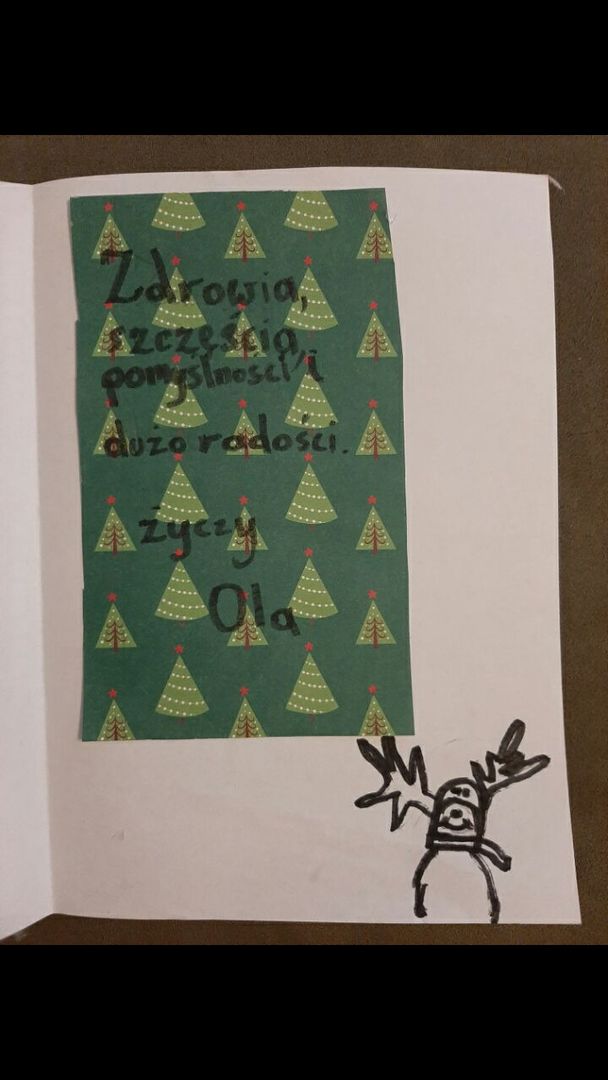 Zdrowia,
szczęścia,
pomyślności i
dużo radości.
życzy
Ola